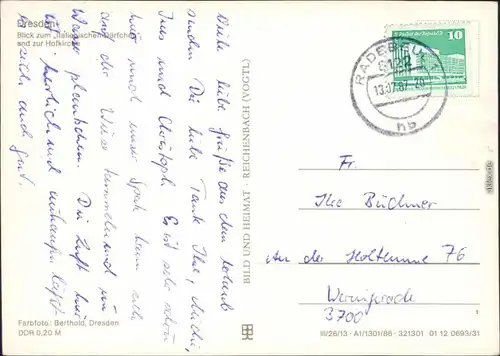 Dresden
Blick zum „Italienischen Dörfchen“
und zur Hofkirche
Viele liebe Grüße aus dem Urlaub
senden Dir liebe Tante Ilse,
Ines und Christoph. Es ist sehr schön
hier und unser Spatz kann sich
auf der Wiese tummeln und im
Wasser plantschen. Die Luft hier
ist herrlich und
es sich auch gut.
BILD UND HEIMAT · REICHENBACH (VOGTL.)
10
RADEBEUL 1
8122
13.07.87-20
hb
Fr.
Ilse Büchner
An der Holtemme 76
Wernigerode
3700
Farbfoto: Berthold, Dresden
DDR 0,20 M
1
III/26/13 · A1/1301/86 · 321301 01 12 0693/31